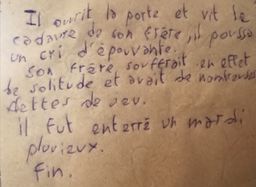 Il ouvrit la porte et vit le
cadavre de son frère, il poussa
un cri d'épouvante.
Son frère souffrait en effet
de solitude et avait de nombreuses
dettes de jeu.
il fut enterré un mardi
pluvieux.
Fin.